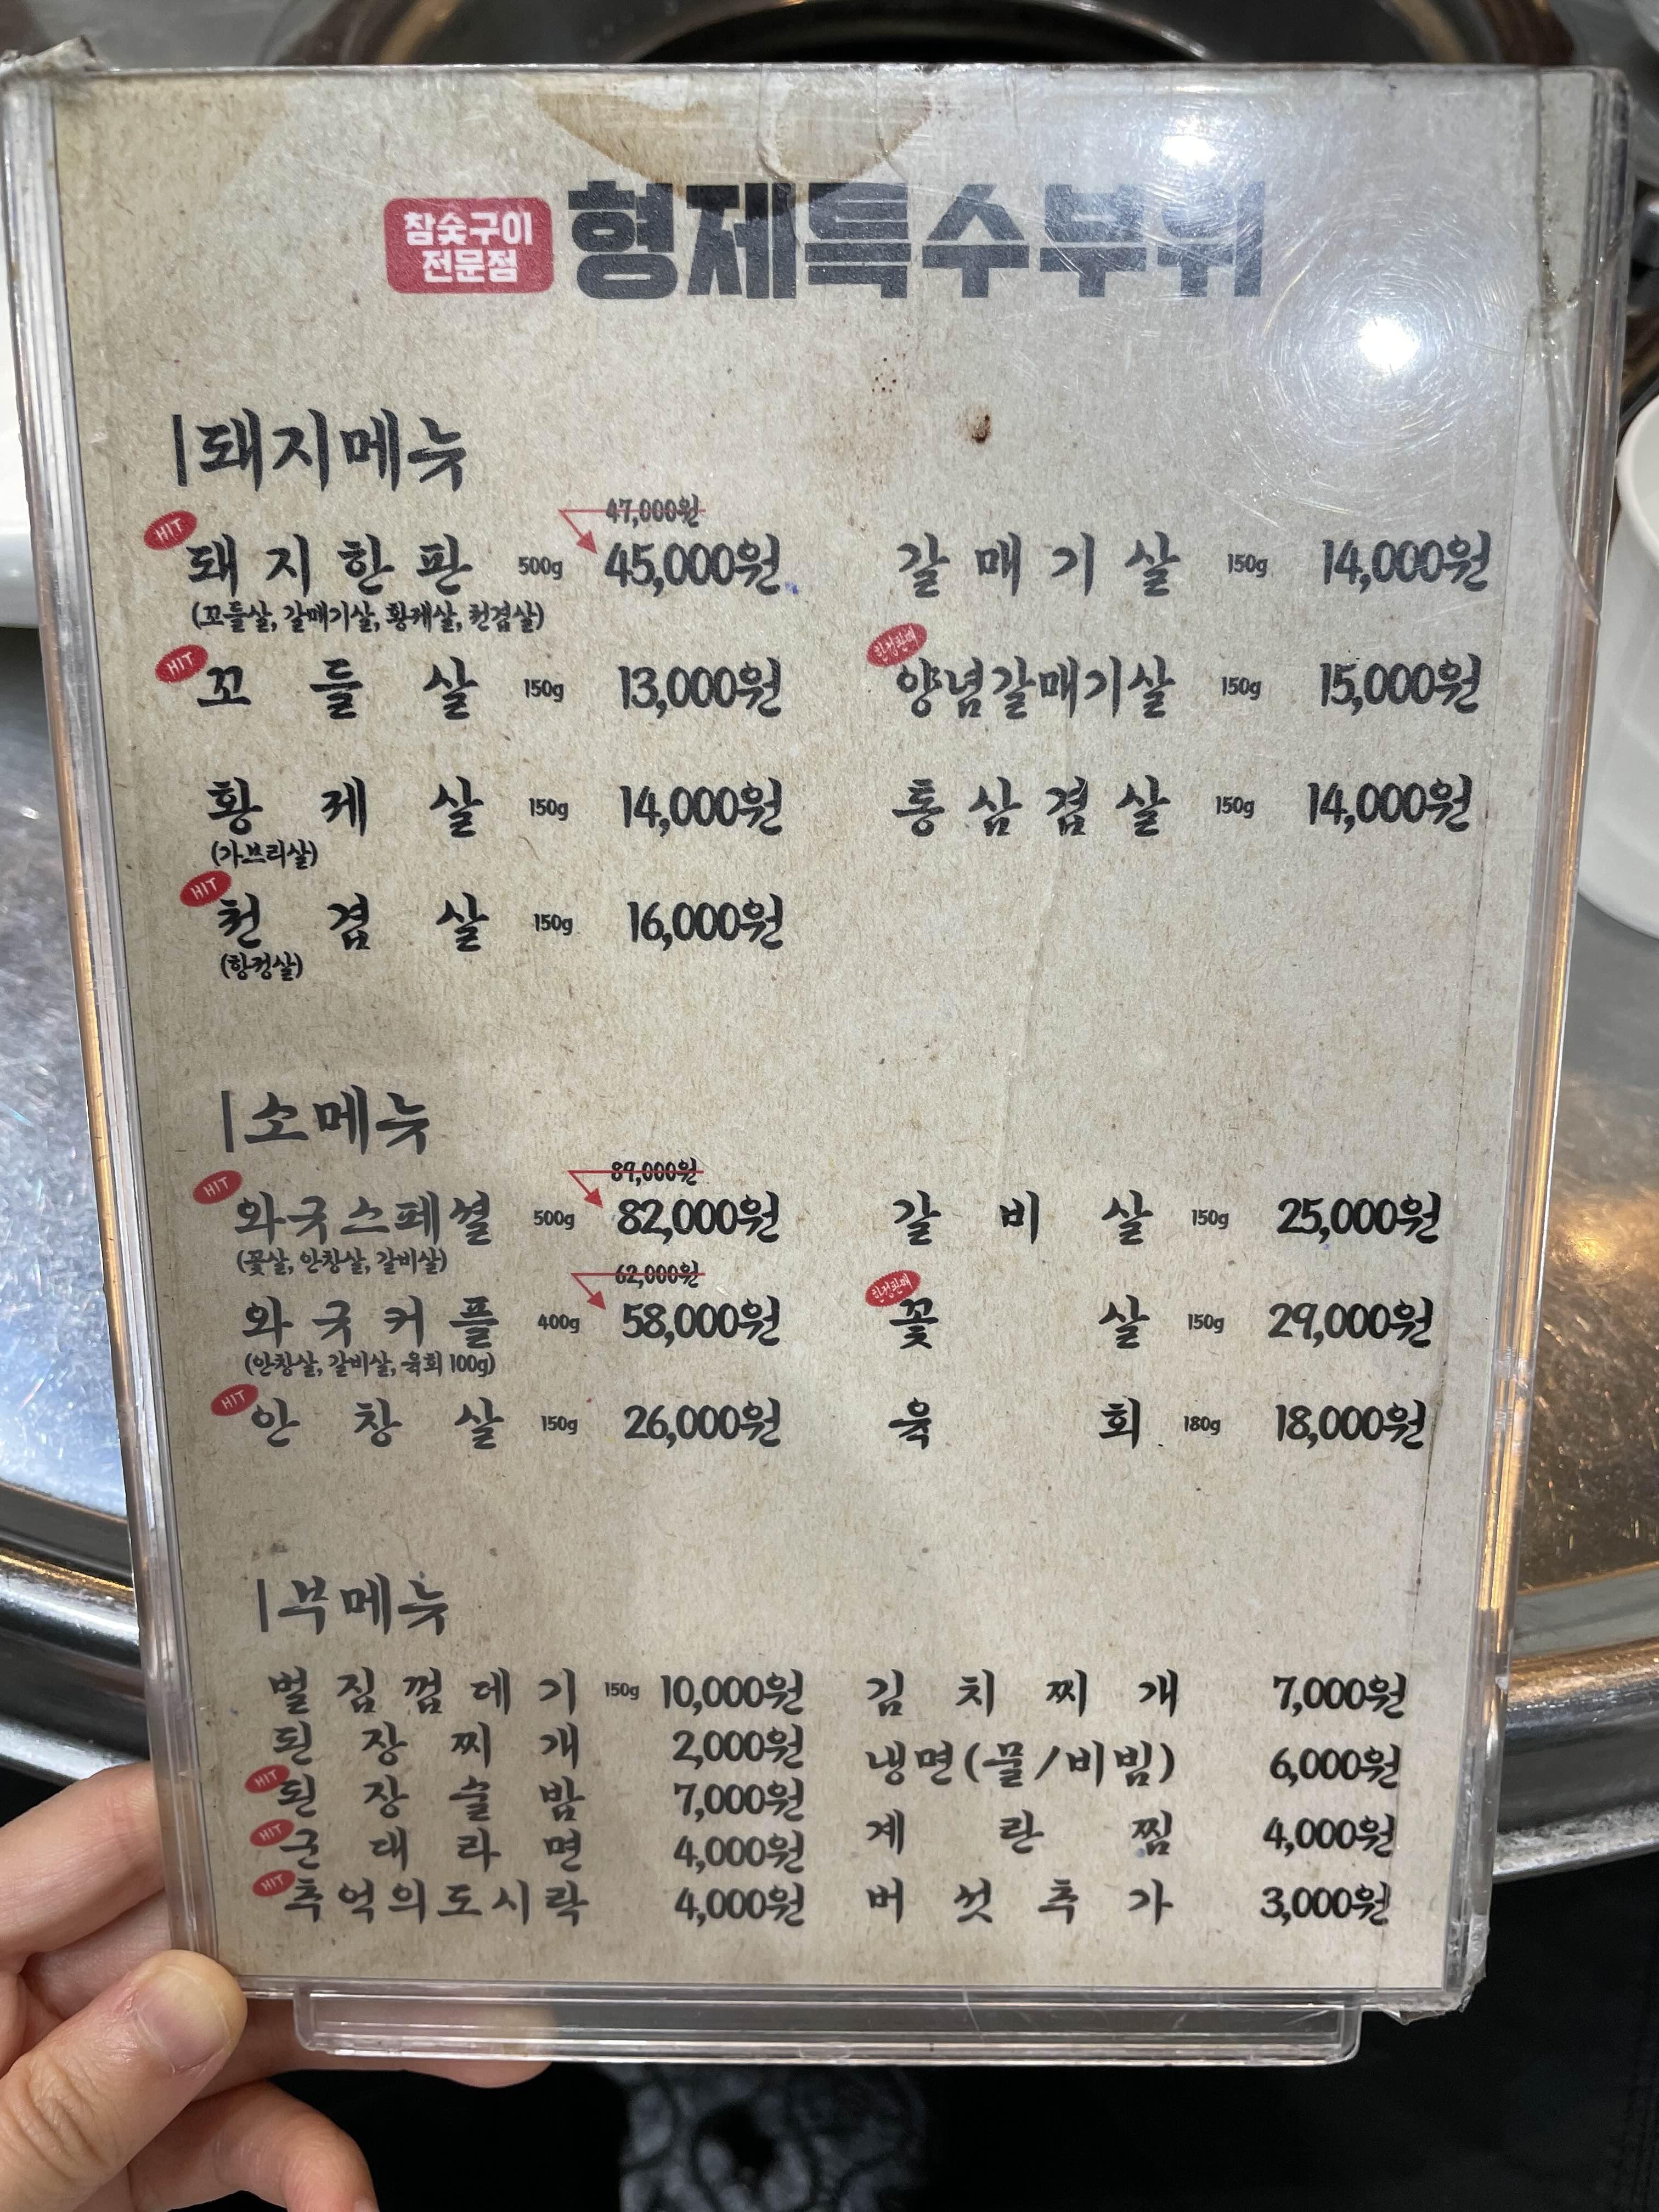 참숯구이
전문점
형제특수부위
돼지메뉴
HIT
돼지한판 500g 47,000원 45,000원
(꼬들살, 갈매기살, 황제살, 천겹살)
갈매기살 150g 14,000원
HIT
꼬들살 150g 13,000원
한정판매
양념갈매기살 150g 15,000원
황제살 150g 14,000원
(가브리살)
통삼겹살 150g 14,000원
HIT
천겹살 150g 16,000원
(항정살)
소메뉴
HIT
와규스페셜 500g 89,000원 82,000원
(꽃살, 안창살, 갈비살)
갈비살 150g 25,000원
와규커플 400g 62,000원 58,000원
(안창살, 갈비살, 육회 100g)
한정판매
꽃살 150g 29,000원
HIT
안창살 150g 26,000원
육회 180g 18,000원
부메뉴
벌집껍데기 150g 10,000원
김치찌개 7,000원
된장찌개 2,000원
냉면(물/비빔) 6,000원
HIT
된장술밥 7,000원
계란찜 4,000원
HIT
군대라면 4,000원
HIT
추억의도시락 4,000원
버섯추가 3,000원